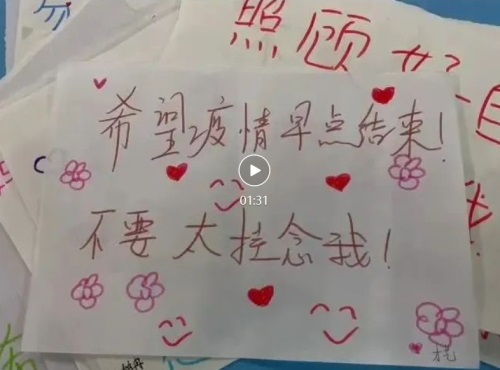 照顾好自
希望疫情早点结束!
01:31
不要太挂念我!